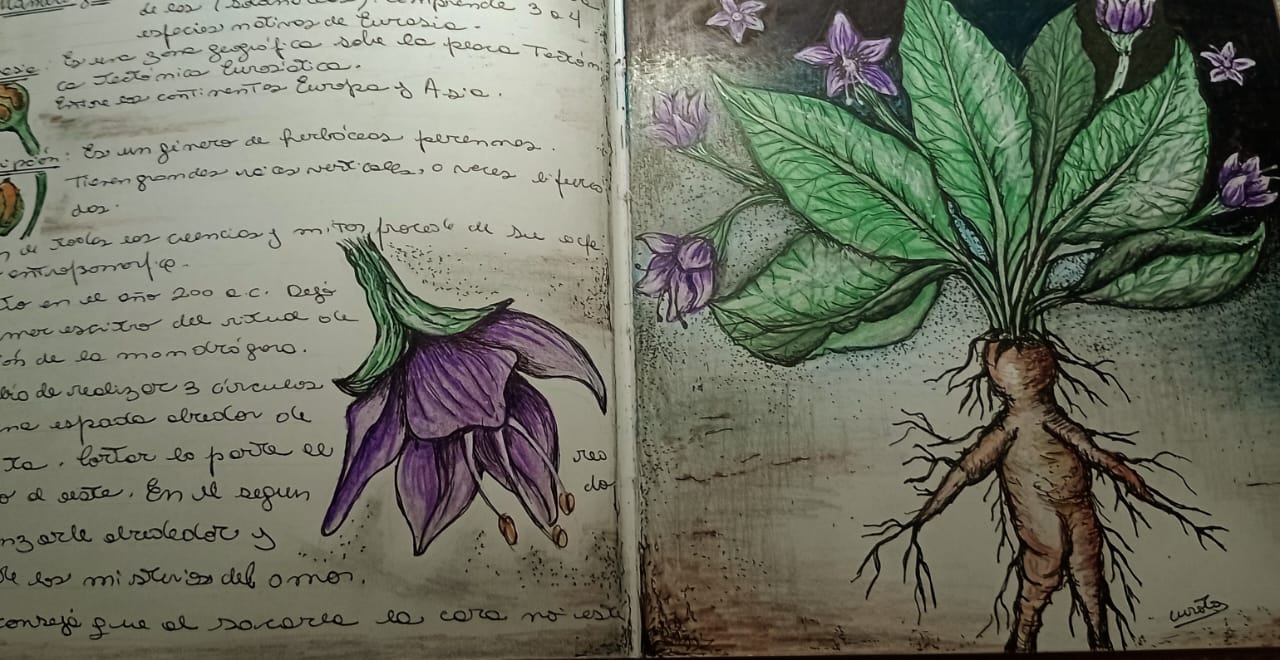 de las (Solanáceas). Comprende 3 o 4
especies nativas de Eurasia.
Es una zona geográfica sobre la placa Tectóni
ca Tectónica Euroasiática.
Entre los continentes Europa y Asia.
ipción: Es un género de herbáceas perennes.
Tienen grandes raíces verticales, a veces bifurca
das.
de todas las creencias y mitos procede de su
antropomorfa.
to en el año 200 a.c. Dejó
mer escrito del ritual de
ión de la mandrágora.
bía de realizar 3 círculos
na espada alrededor de
ta. Cortar la parte al
o al oeste. En el segun do
nzarle alrededor y
de los misterios del amor.
consejá que al sacarla la cara no esté
curota